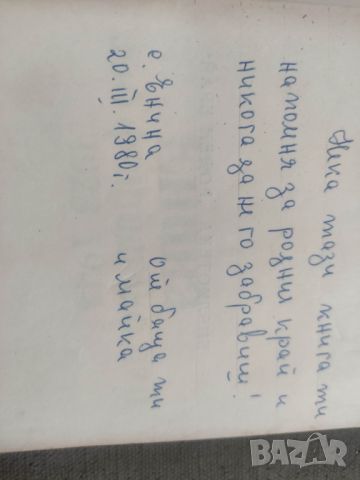 Нека тази книга ти
напомня за родния край и
никога да не го забравиш!
с. Енина
20. III. 1980 г.
от баща ти
и майка
BAZAR